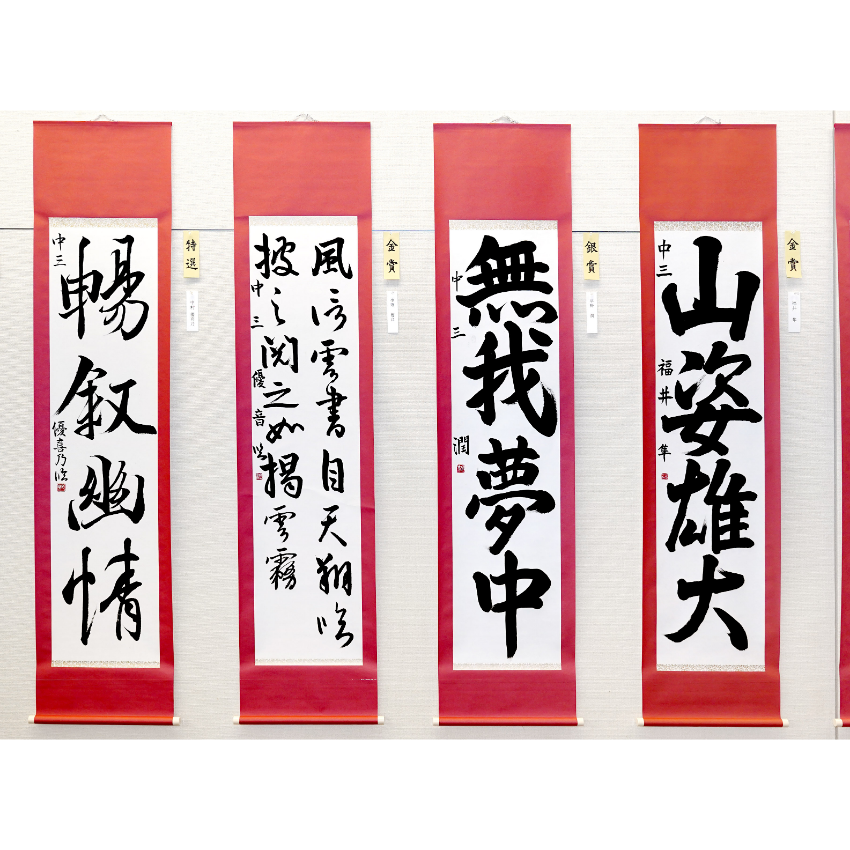 暢叙幽情
中三
優喜乃臨
特選
風信雲書自天翔臨
披之閲之如揭雲霧
中三
優音臨
金賞
無我夢中
中三
潤
銀賞
山姿雄大
中三
福井隼
金賞